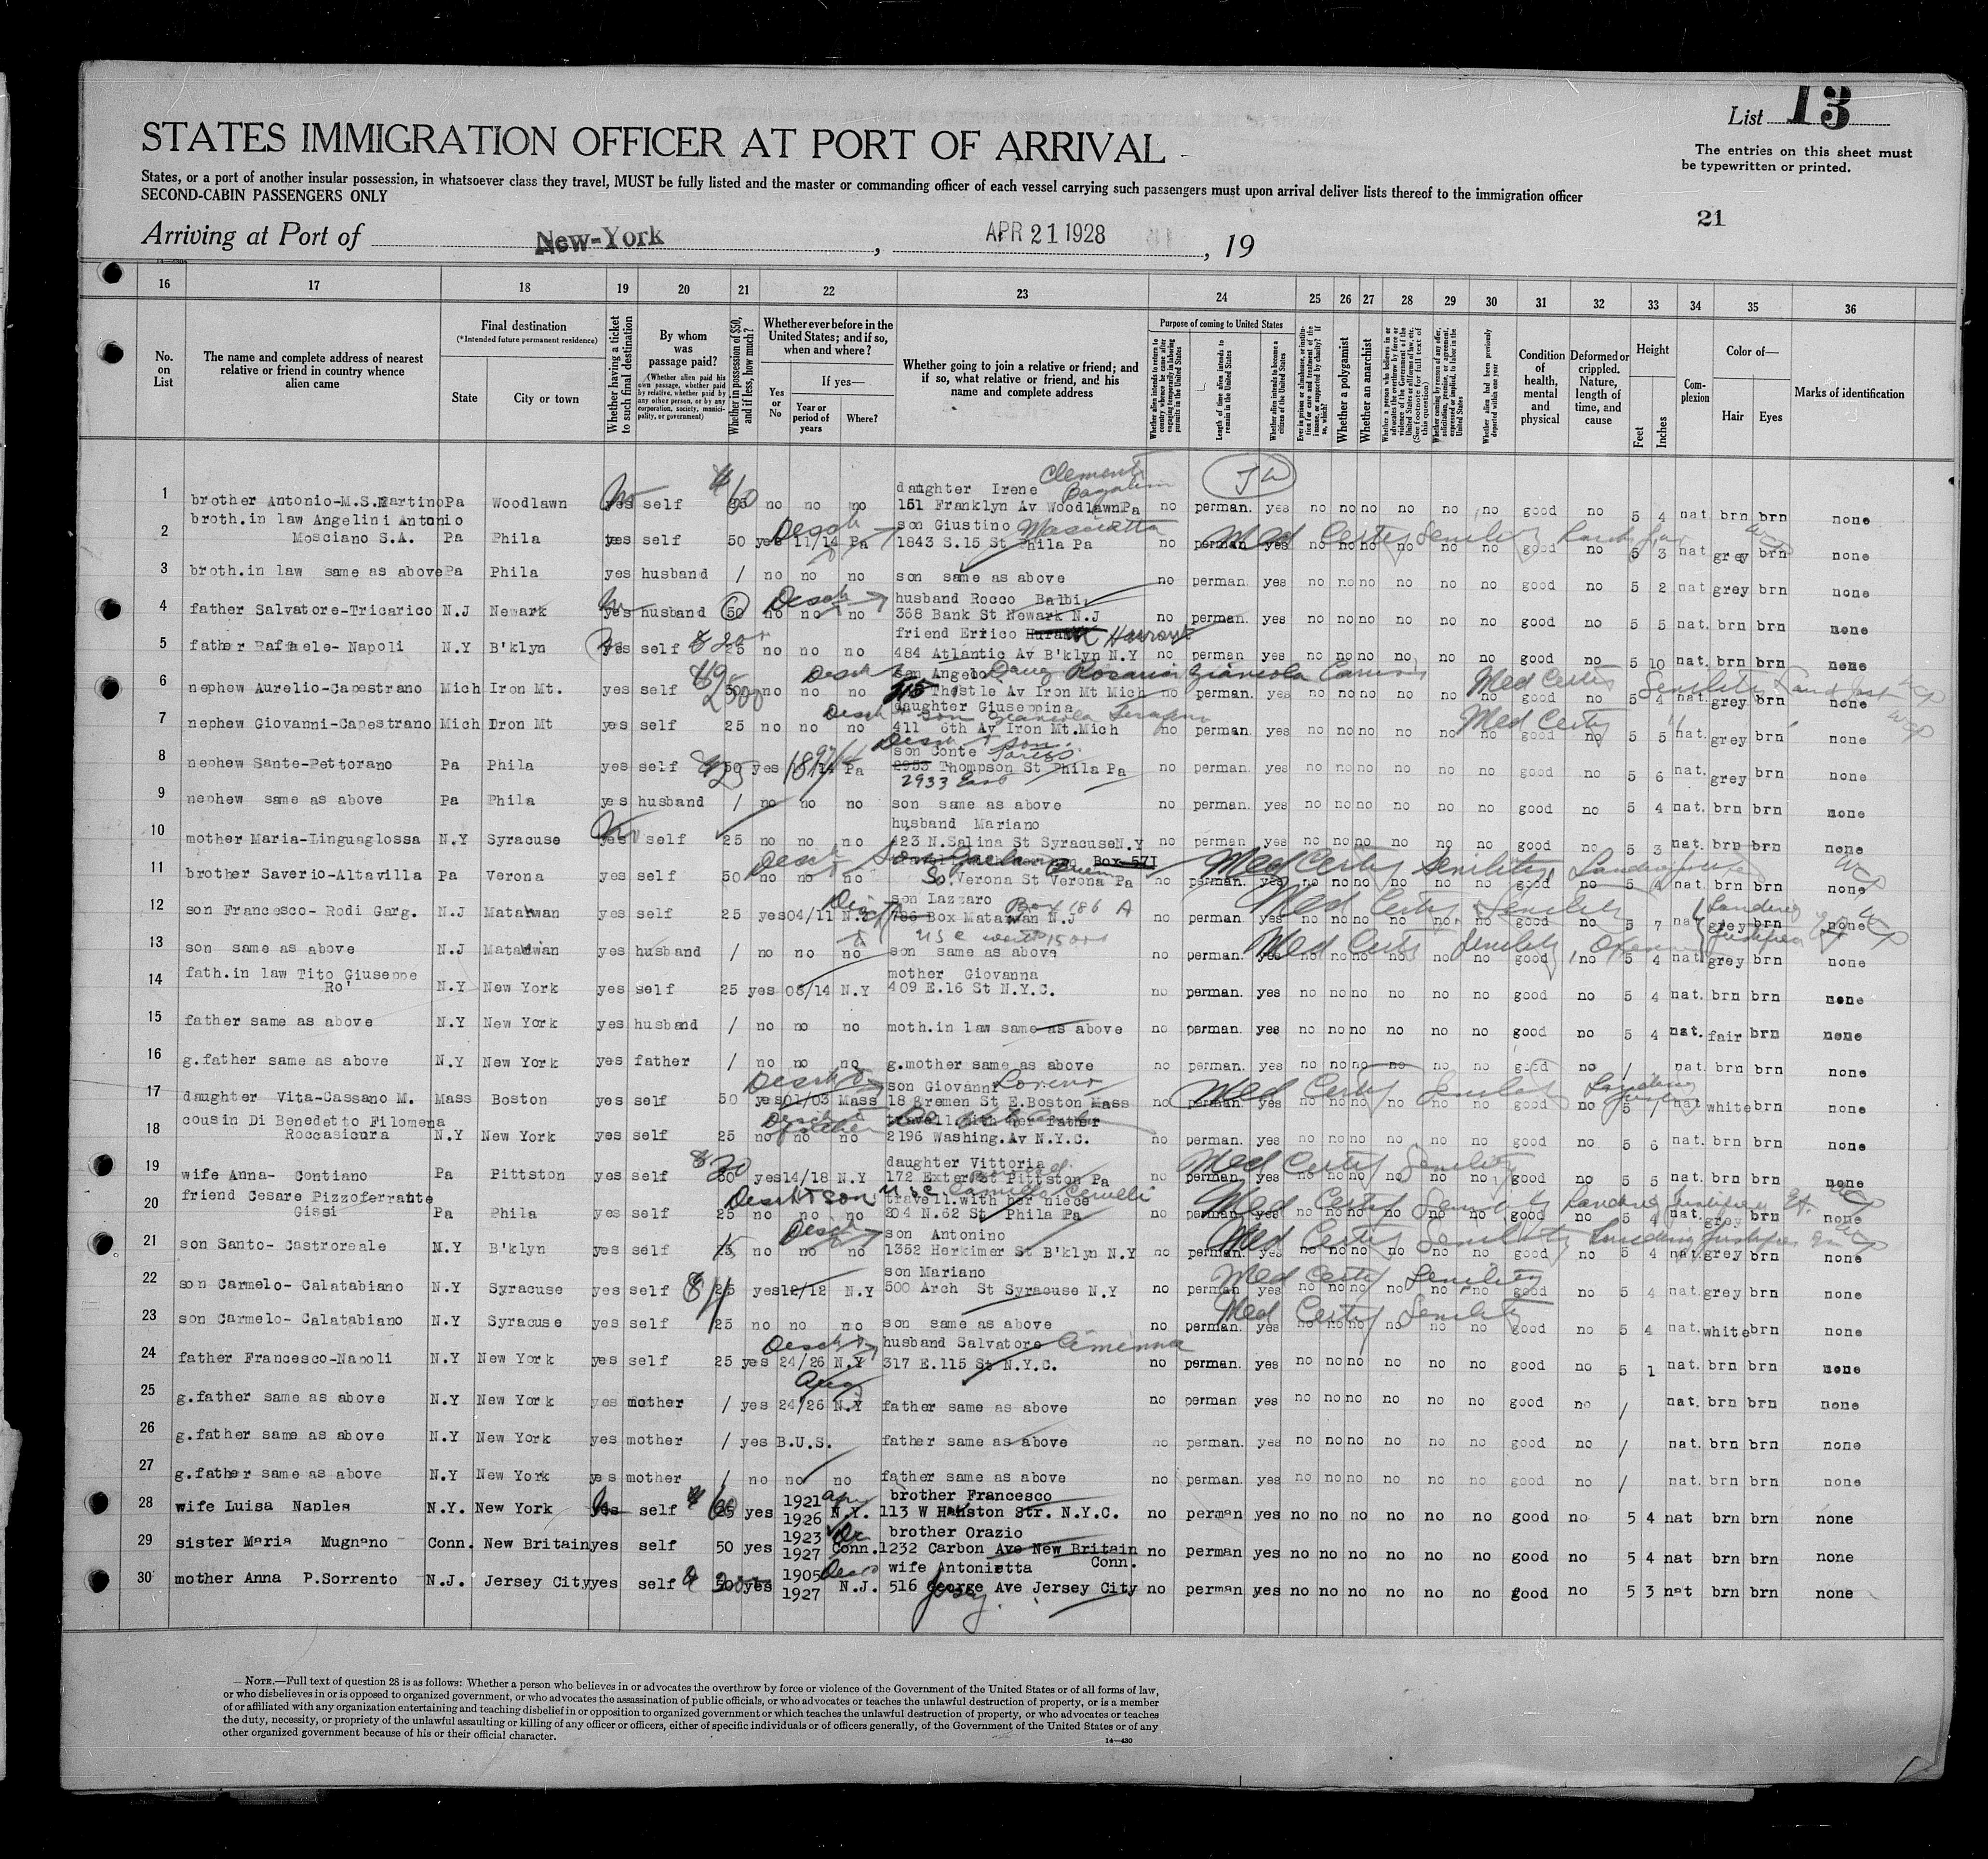 List 13
STATES IMMIGRATION OFFICER AT PORT OF ARRIVAL
The entries on this sheet must
be typewritten or printed.
States, or a port of another insular possession, in whatsoever class they travel, MUST be fully listed and the master or commanding officer of each vessel carrying such passengers must upon arrival deliver lists thereof to the immigration officer
SECOND-CABIN PASSENGERS ONLY
21
Arriving at Port of New-York, APR 21 1928, 19
16 17 18 19 20 21 22 23 24 25 26 27 28 29 30 31 32 33 34 35 36
No. on List
The name and complete address of nearest relative or friend in country whence alien came
Final destination
(*Intended future permanent residence)
State
City or town
Whether having a ticket to such final destination
By whom was passage paid?
(Whether alien paid his own passage, whether paid by relative, whether paid by any other person, or by any corporation, society, municipality, or government)
Whether in possession of $50, and if less, how much?
Whether ever before in the United States; and if so, when and where?
Yes or No
If yes—
Year or period of years
Where?
Whether going to join a relative or friend; and if so, what relative or friend, and his name and complete address
Purpose of coming to United States
Whether alien intends to return to country whence he came after engaging temporarily in laboring pursuits in the United States
Length of time alien intends to remain in the United States
Whether alien intends to become a citizen of the United States
Ever in prison or almshouse, or institution for care and treatment of the insane, or supported by charity? If so, which?
Whether a polygamist
Whether an anarchist
Whether a person who believes in or advocates the overthrow by force or violence of the Government of the United States or all forms of law, etc. (See footnote for full text of this question)
Whether coming by reason of any offer, solicitation, promise, or agreement, expressed or implied, to labor in the United States
Whether alien had been previously deported within one year
Condition of health, mental and physical
Deformed or crippled. Nature, length of time, and cause
Height
Feet
Inches
Complexion
Color of—
Hair
Eyes
Marks of identification
Clement
1 brother Antonio-M.S.Martino Pa Woodlawn yes self no no no daughter Irene
151 Franklyn Av Woodlawn Pa no perman. yes no no no no no no good no 5 4 nat brn brn none
2 broth.in law Angelini Antonio
Mosciano S.A. Pa Phila yes self 50 yes 11/14 Pa son Giustino
1843 S.15 St Phila Pa no perman yes no no no no no no good no 5 3 nat grey brn none
Med Certif Senility
3 broth.in law same as above Pa Phila yes husband / no no no son same as above no perman. yes no no no no no no good no 5 2 nat grey brn none
4 father Salvatore-Tricarico N.J Newark yes husband 50 no no no husband Rocco Balbi
368 Bank St Newark N.J no perman. yes no no no no no no good no 5 5 nat. brn brn none
5 father Raffaele- Napoli N.Y B'klyn yes self 25 no no no friend Errico
484 Atlantic Av B'klyn N.Y no perman yes no no no no no no good no 5 10 nat. brn brn none
6 nephew Aurelio-Capestrano Mich Iron Mt. yes self no no no son Angelo
Thostle Av Iron Mt Mich no perman. yes no no no no no no good no 5 4 nat. grey brn none
Med Certif Senility
7 nephew Giovanni-Capestrano Mich Iron Mt yes self 25 no no no daughter Giuseppina
411 6th Av Iron Mt.Mich no perman. yes no no no no no no good no 5 5 nat. grey brn none
Med Certif
8 nephew Sante-Pettorano Pa Phila yes self 50 yes Pa son Conte
2953 Thompson St Phila Pa no perman. yes no no no no no no good no 5 6 nat. grey brn none
2933 East
9 nephew same as above Pa Phila yes husband / no no no son same as above no perman. yes no no no no no no good no 5 4 nat. brn brn none
10 mother Maria-Linguaglossa N.Y Syracuse yes self 25 no no no husband Mariano
423 N.Salina St Syracuse N.Y no perman yes no no no no no no good no 5 3 nat. brn brn none
11 brother Saverio-Altavilla Pa Verona yes self 50 no no no Box 571
So. Verona St Verona Pa no perman. yes no no no no no no good no 5 4 nat brn brn none
Med Certif Senility
12 son Francesco- Rodi Garg. N.J Matawan yes self 25 yes 04/11 N.Y son Lazzaro Box 186 A
186 Box Matawan N.J no perman. yes no no no no no no good no 5 7 nat grey brn none
Med Certif Senility
13 son same as above N.J Matawan yes husband / no no no son same as above no perman. yes no no no no no no good no 5 4 nat grey brn none
Med Certif Senility
14 fath.in law Tito Giuseppe
Ro' N.Y New York yes self 25 yes 06/14 N.Y mother Giovanna
409 E.16 St N.Y.C. no perman. yes no no no no no no good no 5 4 nat. brn brn none
15 father same as above N.Y New York yes husband / no no no moth.in law same as above no perman. yes no no no no no no good no 5 4 nat. fair brn none
16 g.father same as above N.Y New York yes father / no no no g.mother same as above no perman. yes no no no no no no good no / nat. brn brn none
17 daughter Vita-Cassano M. Mass Boston yes self 50 yes 01/03 Mass son Giovanni
18 Bremen St E.Boston Mass no perman. yes no no no no no no good no 5 1 nat white brn none
Med Certif Senility
18 cousin Di Benedetto Filomena
Roccasicura N.Y New York yes self 25 no no no travell.with her father
2196 Washing.Av N.Y.C. no perman. yes no no no no no no good no 5 6 nat. brn brn none
19 wife Anna- Contiano Pa Pittston yes self yes 14/18 N.Y daughter Vittoria
172 Exter St Pittston Pa no perman. yes no no no no no no good no 5 5 nat. brn brn none
Med Certif Senility
20 friend Cesare Pizzoferrante
Gissi Pa Phila yes self 25 no no no travell.with her niece
204 N.62 St Phila Pa no perman. yes no no no no no no good no 5 4 nat. grey brn none
Med Certif Senility Landing Justified
21 son Santo- Castroreale N.Y B'klyn yes self no no no son Antonino
1352 Herkimer St B'klyn N.Y no perman. yes no no no no no no good no 5 4 nat grey brn none
Med Certif Senility Landing Justified
22 son Carmelo- Calatabiano N.Y Syracuse yes self 25 yes 12/12 N.Y son Mariano
500 Arch St Syracuse N.Y no perman yes no no no no no no good no 5 4 nat. grey brn none
Med Certif Senility
23 son Carmelo- Calatabiano N.Y Syracuse yes self 25 no no no son same as above no perman. yes no no no no no no good no 5 4 nat. white brn none
Med Certif Senility
24 father Francesco-Napoli N.Y New York yes self 25 yes 24/26 N.Y husband Salvatore Cimenna
317 E.115 St N.Y.C. no perman. yes no no no no no no good no 5 1 nat. brn brn none
25 g.father same as above N.Y New York yes mother / yes 24/26 N.Y father same as above no perman yes no no no no no no good no / nat. brn brn none
26 g.father same as above N.Y New York yes mother / yes B.U.S. father same as above no perman. yes no no no no no no good no / nat. brn brn none
27 g.father same as above N.Y New York yes mother / no no no father same as above no perman. yes no no no no no no good no / nat. brn brn none
28 wife Luisa Naples N.Y. New York yes self yes 1921 1926 N.Y. brother Francesco
113 W Houston Str. N.Y.C. no perman yes no no no no no no good no 5 4 nat brn brn none
29 sister Maria Mugnano Conn. New Britain yes self 50 yes 1923 1927 Conn. brother Orazio
1232 Carbon Ave New Britain Conn. no perman yes no no no no no no good no 5 4 nat brn brn none
30 mother Anna P.Sorrento N.J. Jersey City yes self yes 1905 1927 N.J. wife Antonietta
516 George Ave Jersey City no perman yes no no no no no no good no 5 3 nat brn brn none
NOTE.—Full text of question 28 is as follows: Whether a person who believes in or advocates the overthrow by force or violence of the Government of the United States or of all forms of law,
or who disbelieves in or is opposed to organized government, or who advocates the assassination of public officials, or who advocates or teaches the unlawful destruction of property, or is a member
of or affiliated with any organization entertaining and teaching disbelief in or opposition to organized government or which teaches the unlawful destruction of property, or who advocates or teaches
the duty, necessity, or propriety of the unlawful assaulting or killing of any officer or officers, either of specific individuals or of officers generally, of the Government of the United States or of any
other organized government because of his or their official character.
14—430